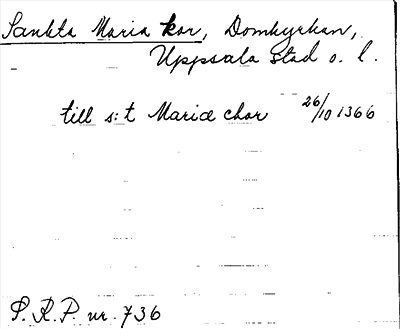 Sankta Maria kor, Domkyrkan,
Uppsala stad o. l.
till s:t Mariæ chor 26/10 1366
P.R.P. nr. 736